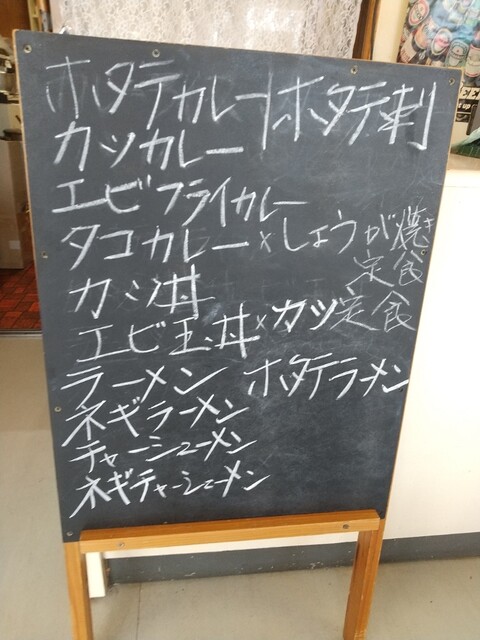 ホタテカレー ホタテ刺
カツカレー
エビフライカレー
タコカレー × しょうが焼き
定食
カツ丼
エビ玉丼 × カツ定食
ラーメン ホタテラーメン
ネギラーメン
チャーシューメン
ネギチャーシューメン